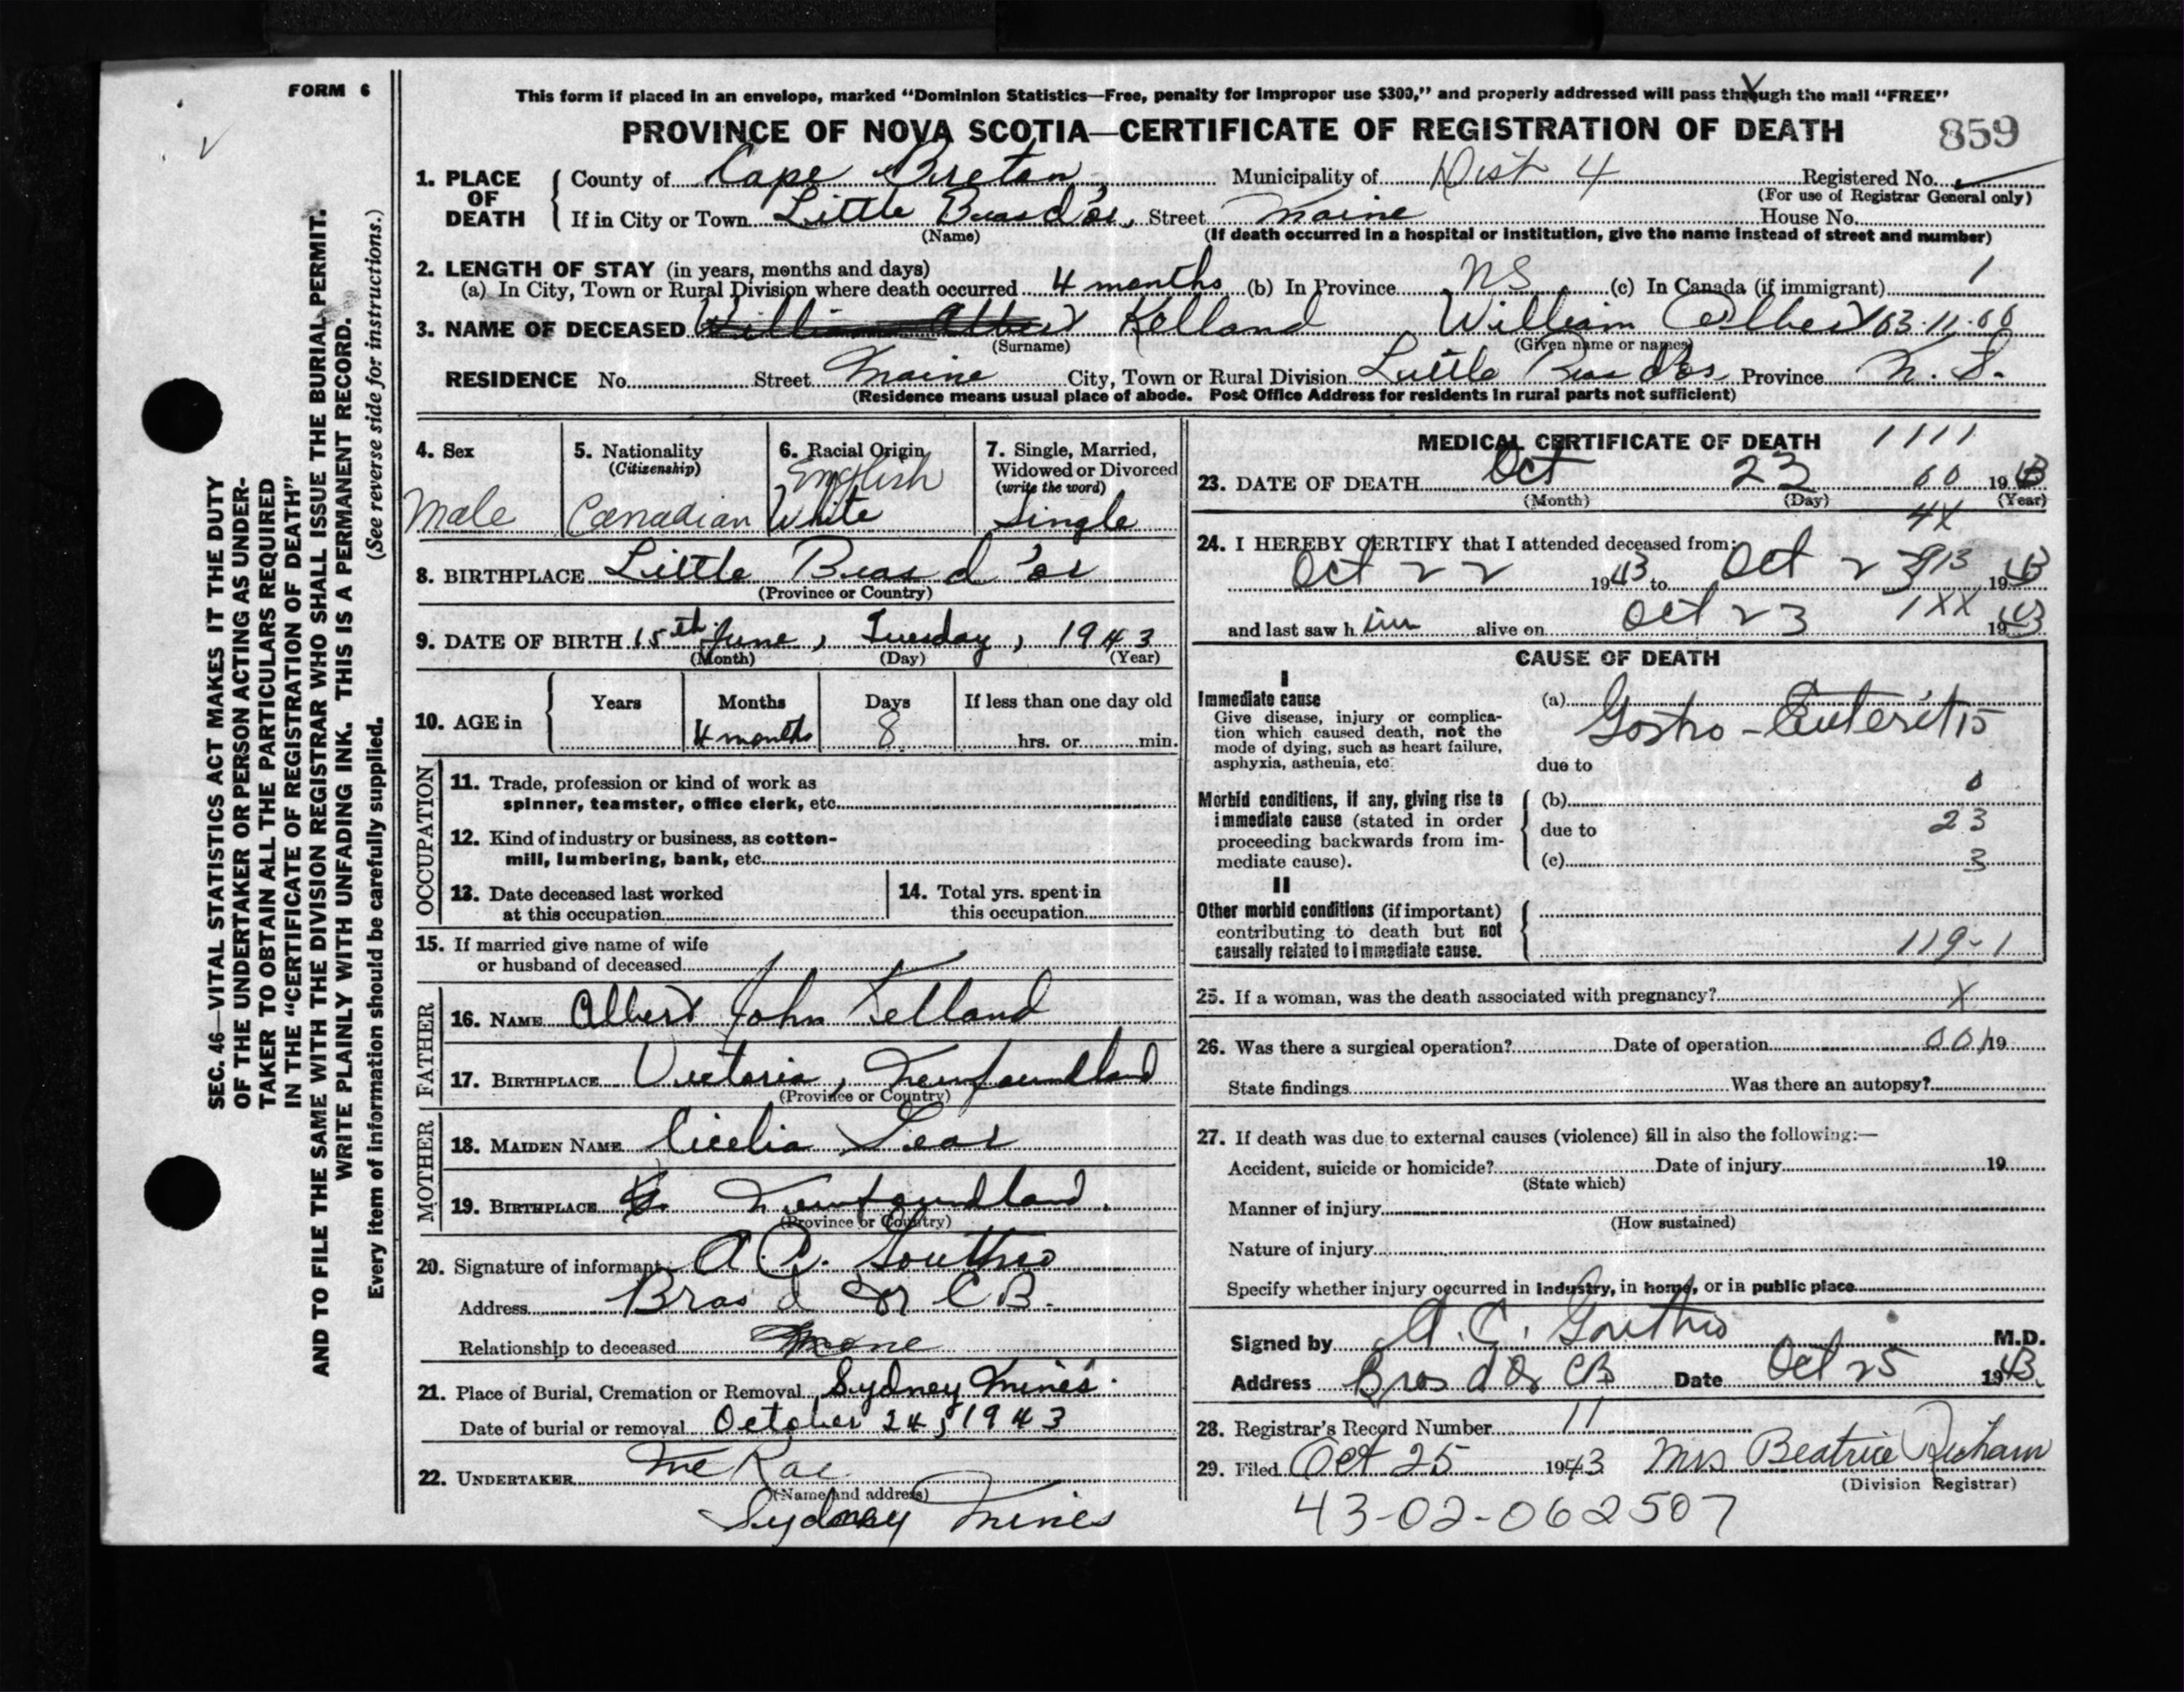 FORM 6
This form if placed in an envelope, marked "Dominion Statistics—Free, penalty for improper use $300," and properly addressed will pass through the mail "FREE"
PROVINCE OF NOVA SCOTIA—CERTIFICATE OF REGISTRATION OF DEATH 859
1. PLACE OF DEATH County of Cape Breton Municipality of Dist 4 Registered No.
(For use of Registrar General only)
If in City or Town Little Bras d'or, Street Maine House No.
(Name) (If death occurred in a hospital or institution, give the name instead of street and number)
2. LENGTH OF STAY (in years, months and days)
(a) In City, Town or Rural Division where death occurred 4 months (b) In Province NS (c) In Canada (if immigrant) 1
3. NAME OF DECEASED William Albert Kelland William Albert 63-11-00
(Surname) (Given name or names)
RESIDENCE No. Street Maine City, Town or Rural Division Little Bras d'or Province N. S.
(Residence means usual place of abode. Post Office Address for residents in rural parts not sufficient)
4. Sex 5. Nationality 6. Racial Origin 7. Single, Married,
(Citizenship) English Widowed or Divorced
(write the word)
Male Canadian White Single
8. BIRTHPLACE Little Bras d'or
(Province or Country)
9. DATE OF BIRTH 15th June, Tuesday, 1943
(Month) (Day) (Year)
10. AGE in Years Months Days If less than one day old
4 months 8 hrs. or min.
OCCUPATION
11. Trade, profession or kind of work as
spinner, teamster, office clerk, etc.
12. Kind of industry or business, as cotton-
mill, lumbering, bank, etc.
13. Date deceased last worked
at this occupation
14. Total yrs. spent in
this occupation
15. If married give name of wife
or husband of deceased
FATHER
16. NAME Albert John Kelland
17. BIRTHPLACE Victoria, Newfoundland
(Province or Country)
MOTHER
18. MAIDEN NAME Cicelia Lear
19. BIRTHPLACE Newfoundland.
(Province or Country)
20. Signature of informant
Address Bras d Or C B.
Relationship to deceased none
21. Place of Burial, Cremation or Removal Sydney Mines
Date of burial or removal October 24, 1943
22. UNDERTAKER McRae
(Name and address)
Sydney Mines
MEDICAL CERTIFICATE OF DEATH 1111
23. DATE OF DEATH Oct 23 00 1943
(Month) (Day) (Year)
4X
24. I HEREBY CERTIFY that I attended deceased from:
Oct 22 1943 to Oct 23 913 1943
and last saw him alive on Oct 23 1XX 1943
CAUSE OF DEATH
I
Immediate cause
Give disease, injury or complica-
tion which caused death, not the
mode of dying, such as heart failure,
asphyxia, asthenia, etc.
(a) Gastro-Enteritis
due to
Morbid conditions, if any, giving rise to
immediate cause (stated in order
proceeding backwards from im-
mediate cause).
(b) 0
due to 23
(c) 3
II
Other morbid conditions (if important)
contributing to death but not
causally related to immediate cause.
119-1
25. If a woman, was the death associated with pregnancy? X
26. Was there a surgical operation? Date of operation 00/19
State findings Was there an autopsy?
27. If death was due to external causes (violence) fill in also the following:—
Accident, suicide or homicide? Date of injury 19
(State which)
Manner of injury
(How sustained)
Nature of injury
Specify whether injury occurred in industry, in home, or in public place
Signed by M.D.
Address Bras d Or CB Date Oct 25 1943
28. Registrar's Record Number 11
29. Filed Oct 25 1943 Mrs Beatrice
(Division Registrar)
43-02-062507
SEC. 46—VITAL STATISTICS ACT MAKES IT THE DUTY
OF THE UNDERTAKER OR PERSON ACTING AS UNDER-
TAKER TO OBTAIN ALL THE PARTICULARS REQUIRED
IN THE "CERTIFICATE OF REGISTRATION OF DEATH"
AND TO FILE THE SAME WITH THE DIVISION REGISTRAR WHO SHALL ISSUE THE BURIAL PERMIT.
WRITE PLAINLY WITH UNFADING INK. THIS IS A PERMANENT RECORD.
Every item of information should be carefully supplied. (See reverse side for instructions.)